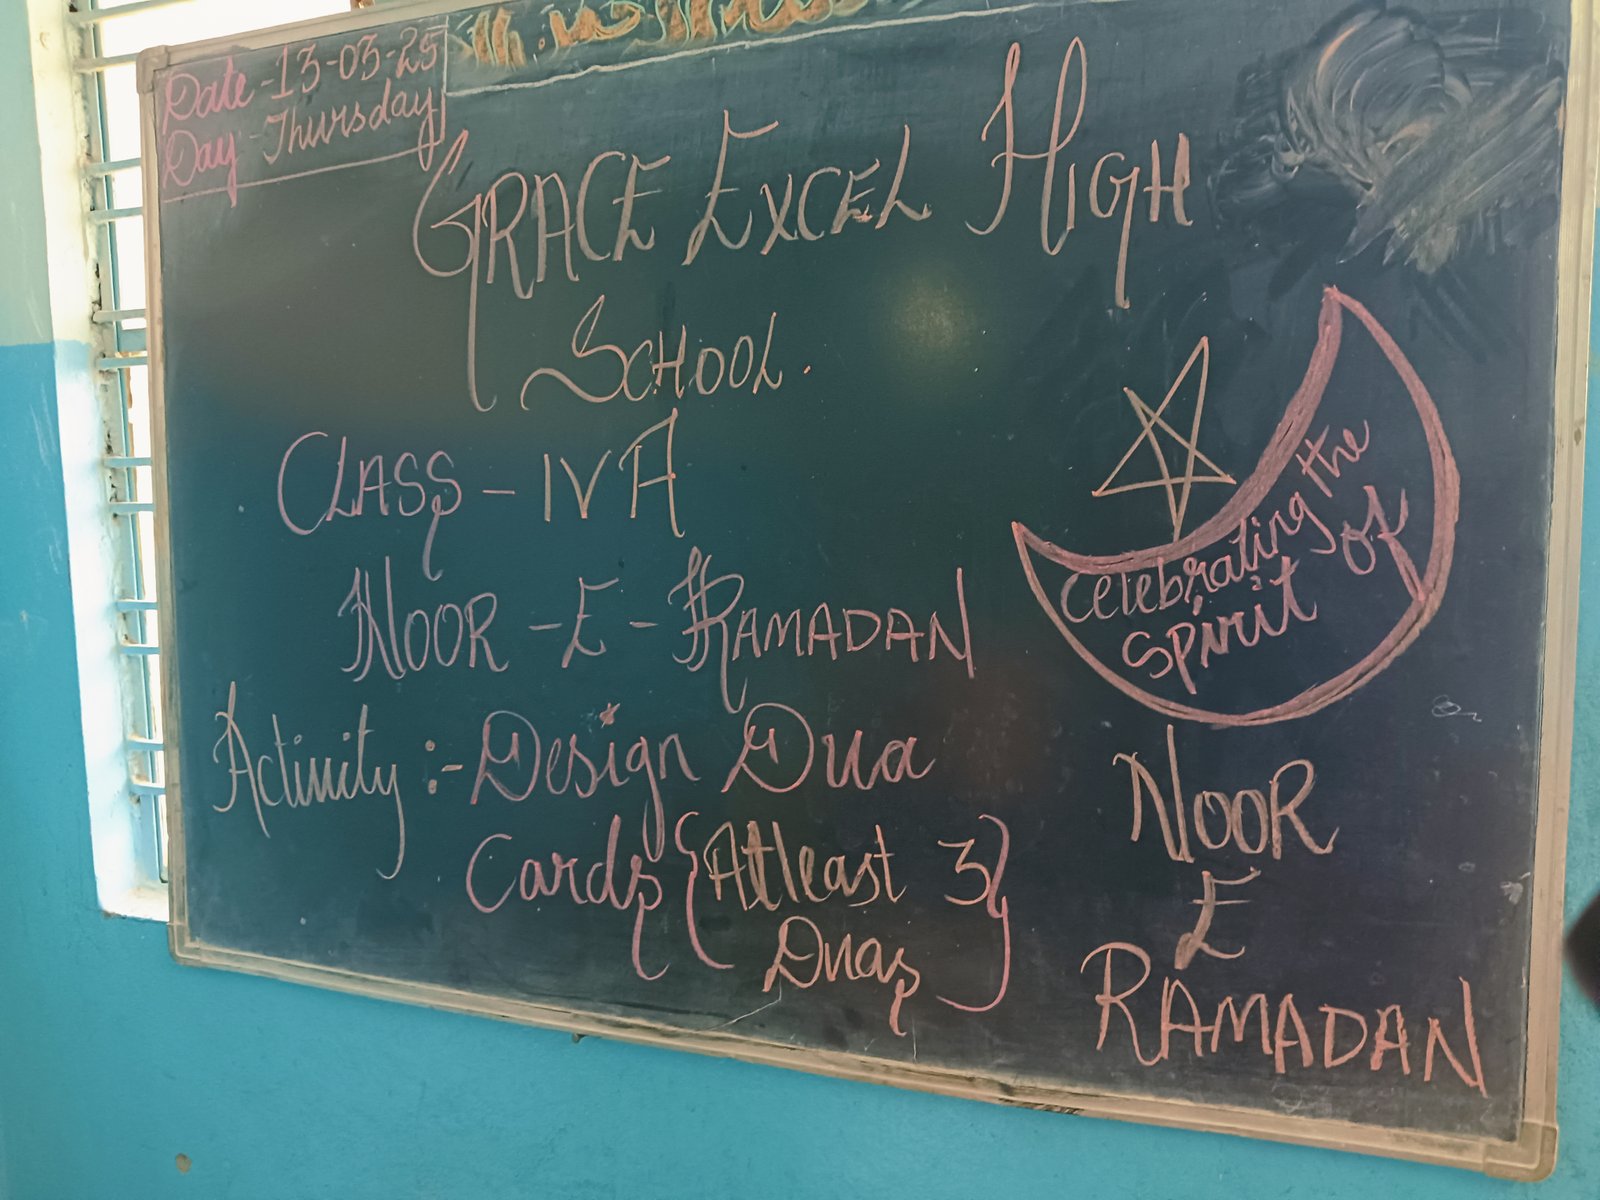 Date - 13-03-25
Day - Thursday
GRACE EXCEL HIGH
SCHOOL.
CLASS - IV A
NOOR - E - RAMADAN
Activity :- Design Dua
Cards {Atleast 3
Duas}
Celebrating the
Spirit of
NOOR
E
RAMADAN